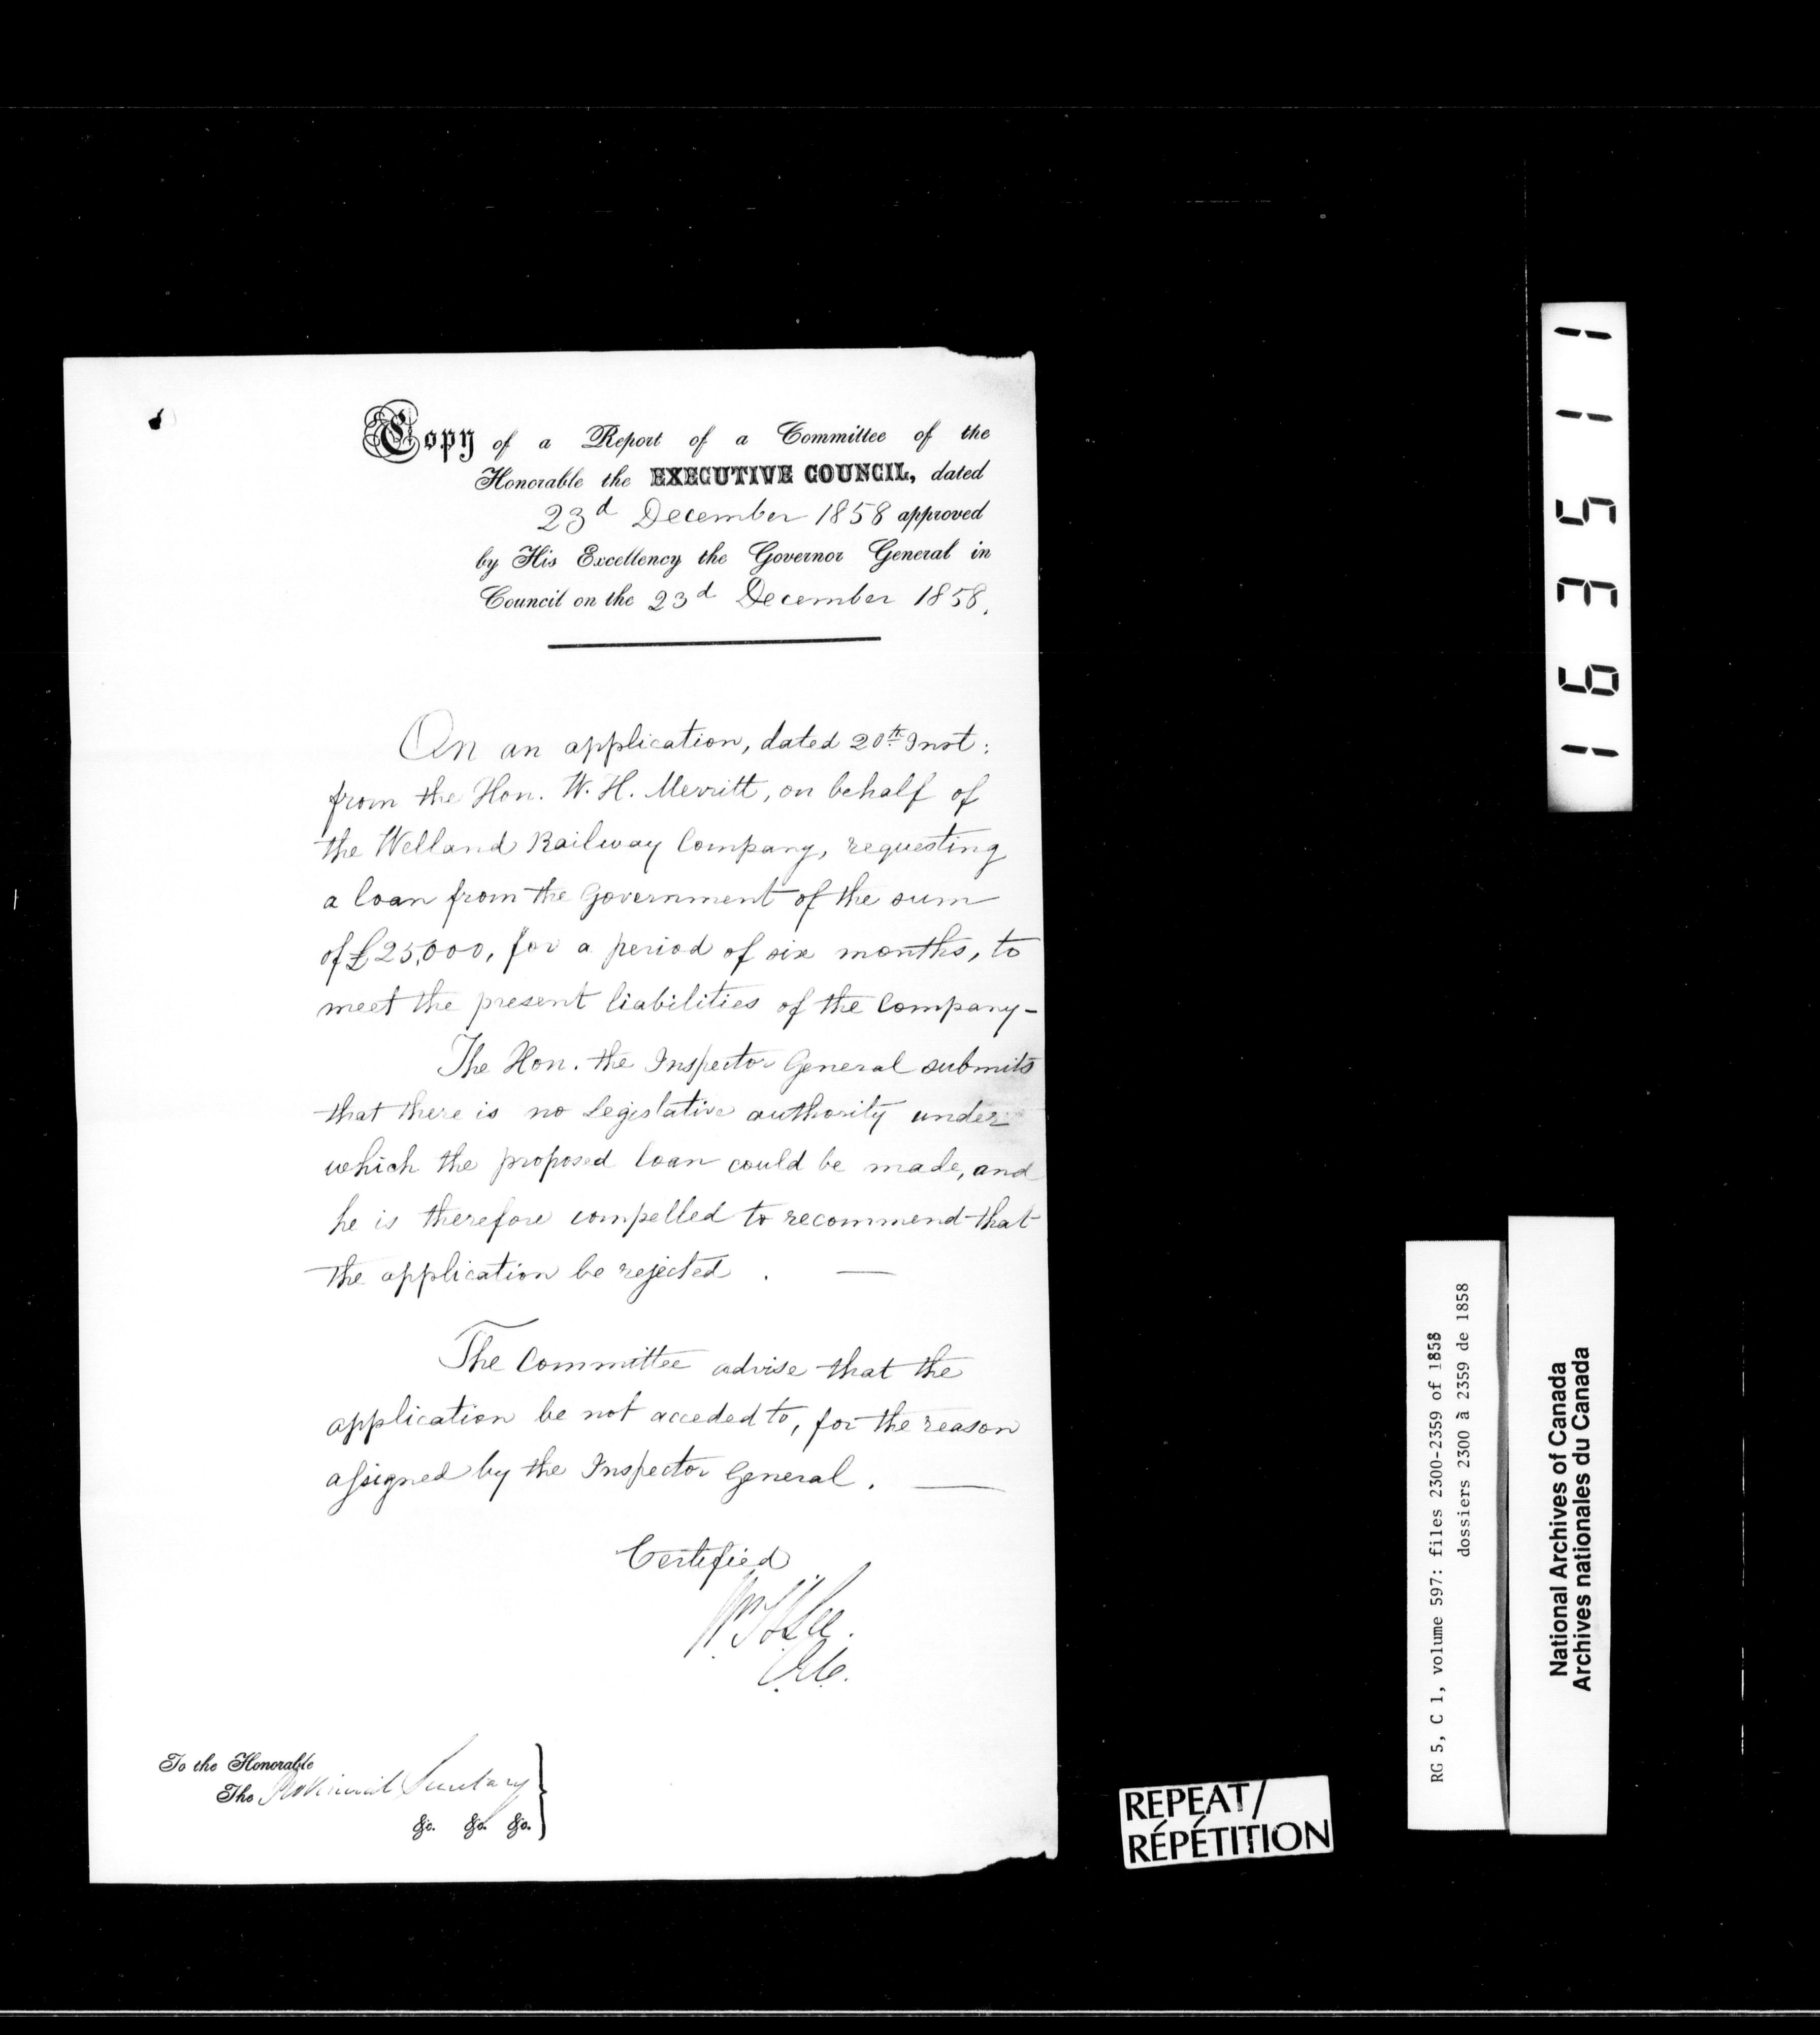 Copy of a Report of a Committee of the
Honorable the EXECUTIVE COUNCIL, dated
23d December 1858 approved
by His Excellency the Governor General in
Council on the 23d December 1858.
On an application, dated 20th Inst:
from the Hon. W. H. Merritt, on behalf of
the Welland Railway Company, requesting
a loan from the Government of the sum
of £25,000, for a period of six months, to
meet the present liabilities of the Company-
The Hon. the Inspector General submits
that there is no Legislative authority under
which the proposed loan could be made, and
he is therefore compelled to recommend that
the application be rejected. —
The Committee advise that the
application be not acceded to, for the reason
assigned by the Inspector General. —
Certified
Wm H Lee.
To the Honorable
The Provincial Secretary
&c. &c. &c.
163511
RG 5, C 1, volume 597: files 2300-2359 of 1858
dossiers 2300 à 2359 de 1858
National Archives of Canada
Archives nationales du Canada
REPEAT/
RÉPÉTITION